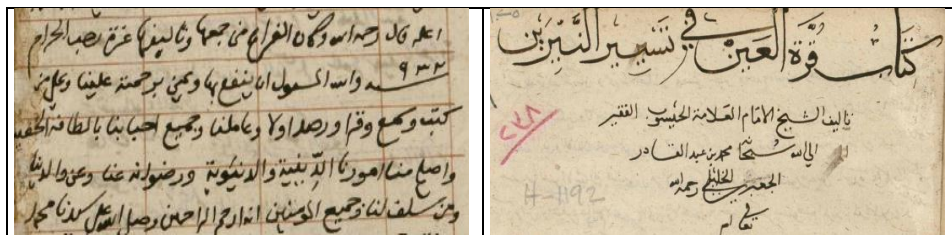 اعلم قال رحمه الله وكان الفراغ من جمعها وتاليفها غرة رجب الحرام
سنة ٩٣٢ والله المسئول ان ينفع بها ويمن برحمته علينا وعلى من
كتب وسمع وقرا ورصد اولا وعاملنا وجميع احبابنا بالطافه الخفية
واصلح منا امورنا الدينية والدنيوية ورضوانه عنا وعن والدينا
ومن سلف لنا وجميع المومنين انه ارحم الراحمين وصلى الله على سيدنا محمد
كتاب قرة العين في تسيير النيرين
تاليف الشيخ الامام العلامة الحيسوب الفقير
الى الله شيخنا محمد بن عبد القادر
الجعبري الخليلي رحمه الله
تعالى
٢٣٨
H-1192